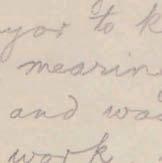 yor to k
mearing
and was
work